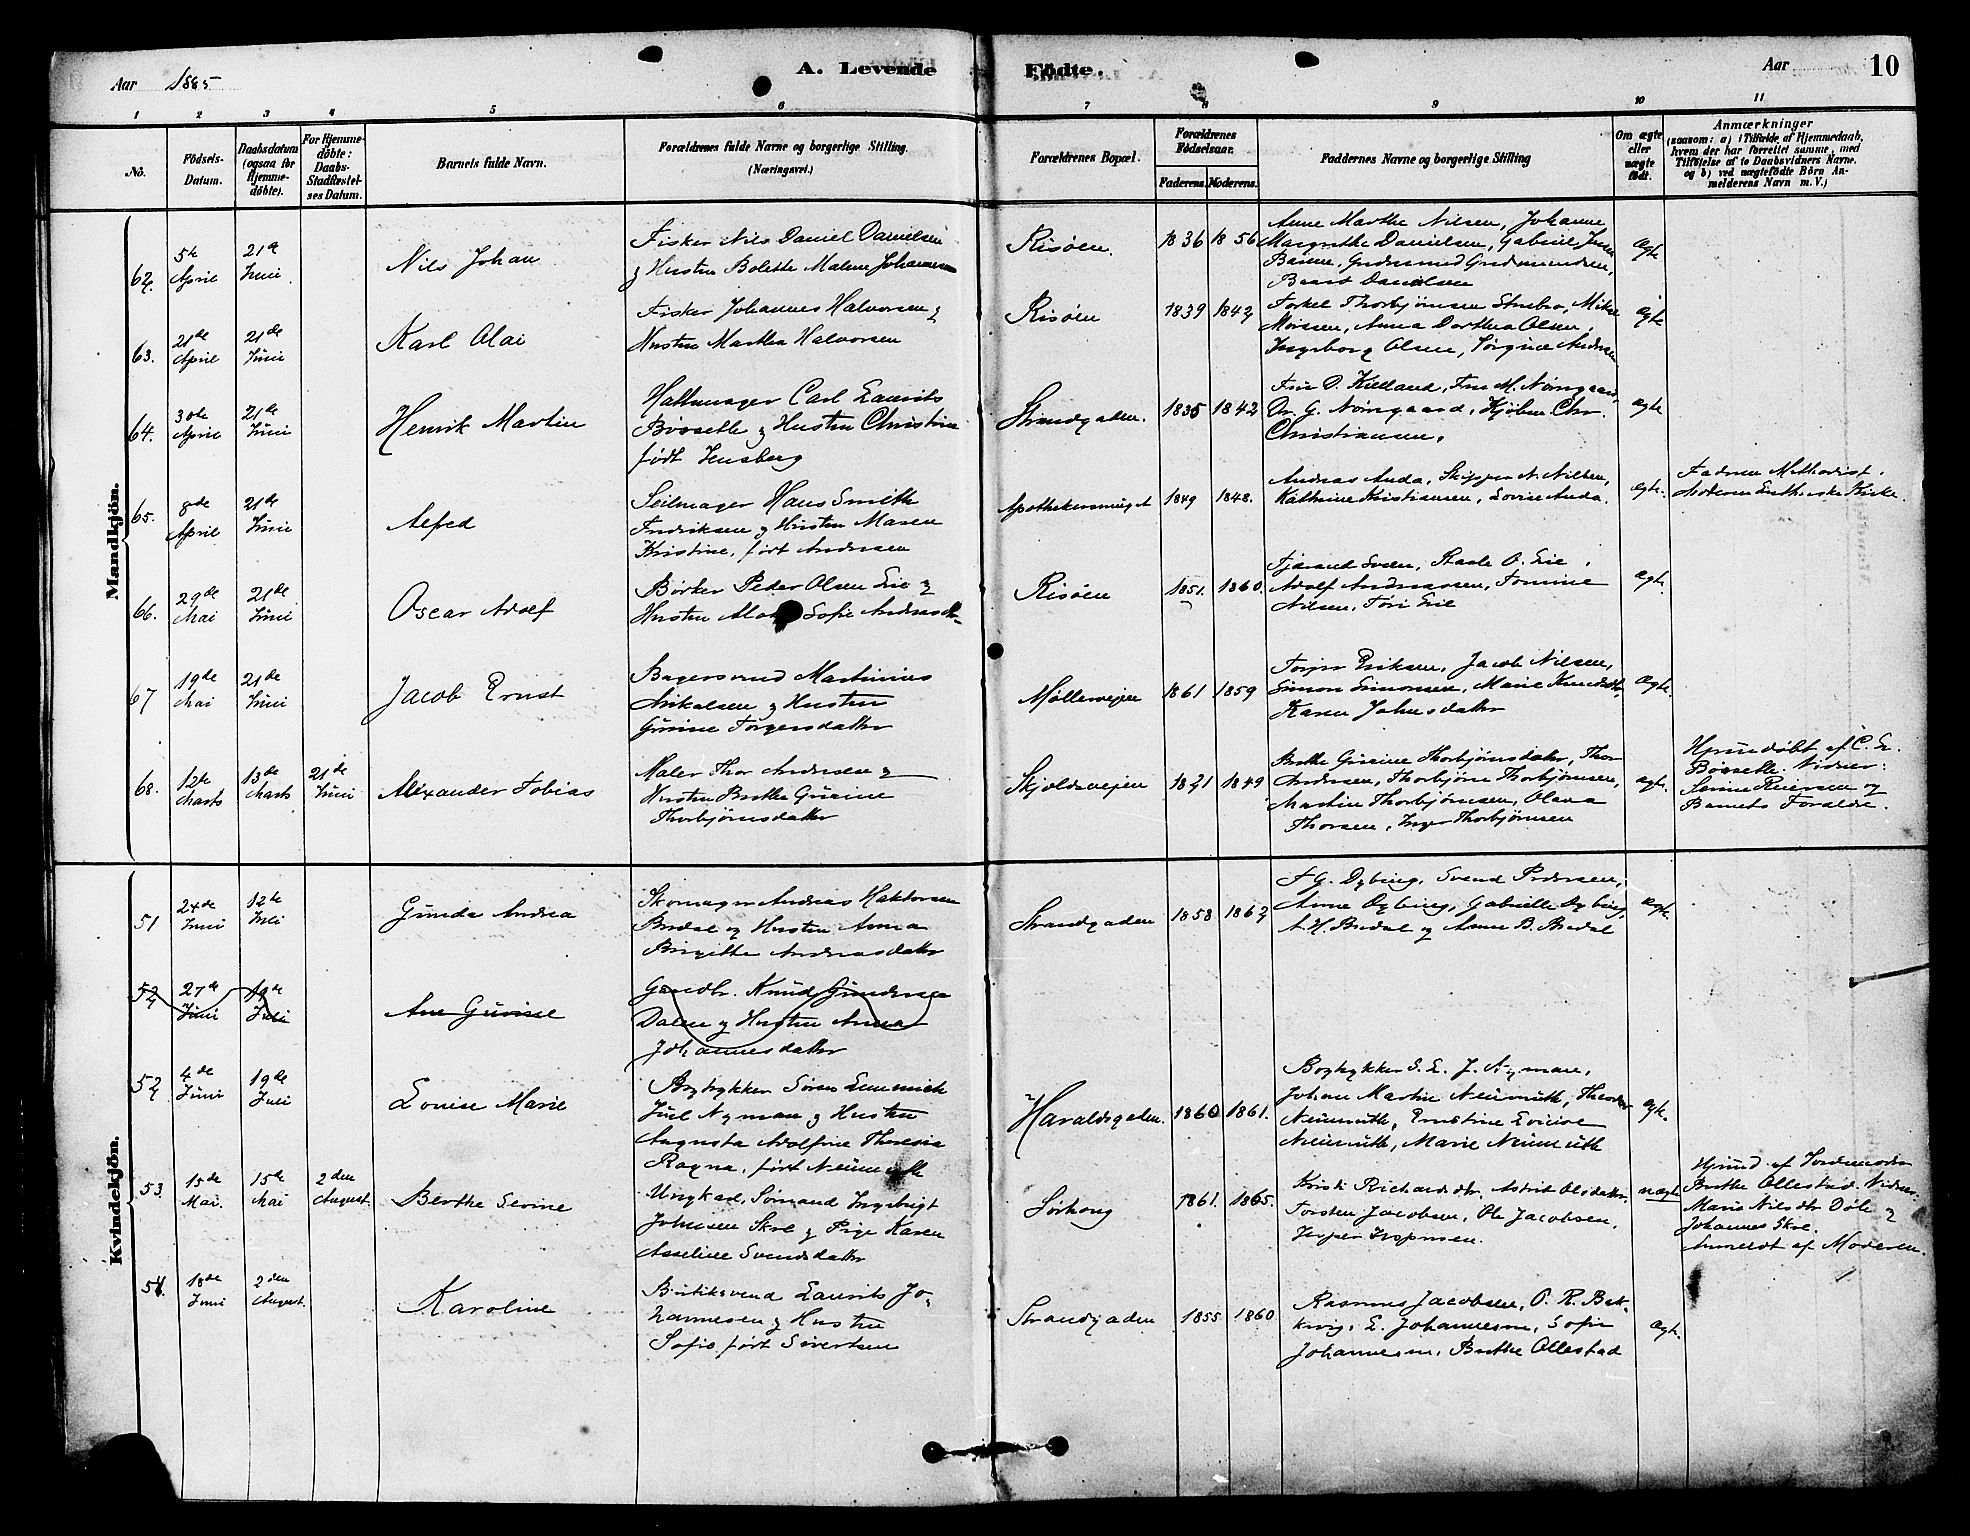 Aar 1885
A. Levende
Fødte.
Aar
10
1 2 3 4 5 6 7 8 9 10 11
No.
Födsels-
Datum.
Daabsdatum
(ogsaa for
Hjemme-
döbte).
For Hjemme-
döbte:
Daabs-
Stadfæstel-
ses Datum.
Barnets fulde Navn.
Forældrenes fulde Navne og borgerlige Stilling.
(Næringsvei.)
Forældrenes Bopæl.
Forældrenes
Födselsaar.
Faderens.
Moderens.
Faddernes Navne og borgerlige Stilling
Om ægte
eller
uægte
födt.
Anmærkninger
(saasom: a) i Tilfælde af Hjemmedaab,
hvem der har forrettet samme, med
Tilföielse af to Daabsvidners Navne.
og b) ved uægtefödte Börn An-
melderens Navn m. V.)
Mandkjön.
62.
5te
April
21de
Juni
Nils Johan
Fisker Nils Daniel Danielsen
og Hustru Bolette Malene Johannesen
Risøen.
1836
1856
Anne Marthe Nilsen, Johanne
Margrethe Danielsen, Gabriel
Gudmund Gudmundsen,
Danielsen
ægte
63.
21de
April
21de
Juni
Karl Olai
Fisker Johannes Halvorsen og
Hustru Martha Halvorsen
Risøen
1839
1842
Torkel Thorbjørnsen
Anna Dorthea Olsen,
Ingeborg Olsen,
ægte
64.
30te
April
21de
Juni
Henrik Martin
Hattemager Carl Laurits
Børsetle og Hustru Christine
født Jensberg
Strandgaden.
1835
1842
Fru D. Kielland, Fru M. Nørregaard,
Dr. G. Nørregaard, Kjøbm. Chr.
Christiansen.
ægte
65.
8de
April
21de
Juni
Alfred
Seilmager Hans Smith
Fredriksen og Hustru Maren
Kristine, født Andersen
Apothekersmuget
1849
1848.
Andreas Anda, Skipper N. Nilsen,
Kathrine Kristiansen, Lovise Anda.
ægte.
Faderen Methodist.
Moderen Lutherske Kirke.
66.
29de
Mai
21de
Juni
Oscar Adolf
Bødker Peder Olsen Lie og
Hustru Sofie Andreasdtr.
Risøen
1851.
1860.
Adolf Andreassen, Tomine
Nilsen, Tøri Lie
ægte.
67
19de
Mai
21de
Juni
Jacob Ernst
Bagersvend Martinius
Mikalsen og Hustru
Gurine Torgersdatter
Møllerveien
1861
1859
Torger Eriksen, Jacob Nilsen,
Simon Simonsen, Marie Knudsdtr,
Karen Johnsdatter
Ægte.
68.
12te
Marts
13de
Marts
21de
Juni
Alexander Tobias
Maler Thor Andersen og
Hustru Berthe Gurine
Thorbjørnsdatter
Skjoldeveien
1821
1849
Berthe Gurine Thorbjørnsdatter, Thor
Andersen, Thorbjørn Thorbjørnsen,
Martin Thorbjørnsen, Olava
Thorsen, Inger Thorbjørnsen
ægte.
Hjemdøbt af C. L.
Børsetle. Vidner:
Serine Reiersen og
Barnets Forældre.
Kvindekjön.
51
24de
Juni
12te
Juli
Gunda Andrea
Skomager Andreas Haktorsen
Bredal og Hustru Anna
Birgitte Andreasdatter
Strandgaden
1858
1862
F. G. Dybing, Svend Pedersen,
Anne Dybing, Gabrielle Dybing,
A. H. Bredal og Anne B. Bredal
ægte.
52
27de
Juni
19de
Juli
Ane Gurine
Gaardbr. Knud Gundersen
Dalen og Hustru Anna
Johannesdatter
52
4de
Juni
19de
Juli
Louise Marie
Bogtrykker Søren Lemmich
Juel Nyman og Hustru
Augusta Adolfine Theresia
Ragna, født Neumuth
Haraldsgaden.
1860
1861.
Bogtrykker S. L. J. Nyman,
Johan Martin Neumuth, Theodor
Neumuth, Ernstine Lovise
Neumuth, Marie Neumuth
ægte.
53
15de
Mai.
15de
Mai
2den
August.
Berthe Serine
Ungkarl, Sømand Ingebrigt
Johnsen Skre og Pige Karen
Asseline Svendsdatter
Sørhoug
1861.
1865.
Kristi Richardsdtr. Astrid Olsdatter.
Torsten Jacobsen, Ole Jacobsen.
Jesper Jespersen.
uægte
Hjemd. af Jordemoder
Berthe Ollestad. Vidner:
Marie Nilsdtr Døle og
Johannes Skre.
Anmeldt af Moderen.
54.
18de
Juni
2den
August.
Karoline
Butiksvend Laurits Jo-
hannesen og Hustru
Sofie født Sivertsen
Strandgaden
1855
1860
Rasmus Jacobsen, O. R. Bak-
kevig, L. Johannesen, Sofie
Johannesen, Berthe Ollestad
Ægte.